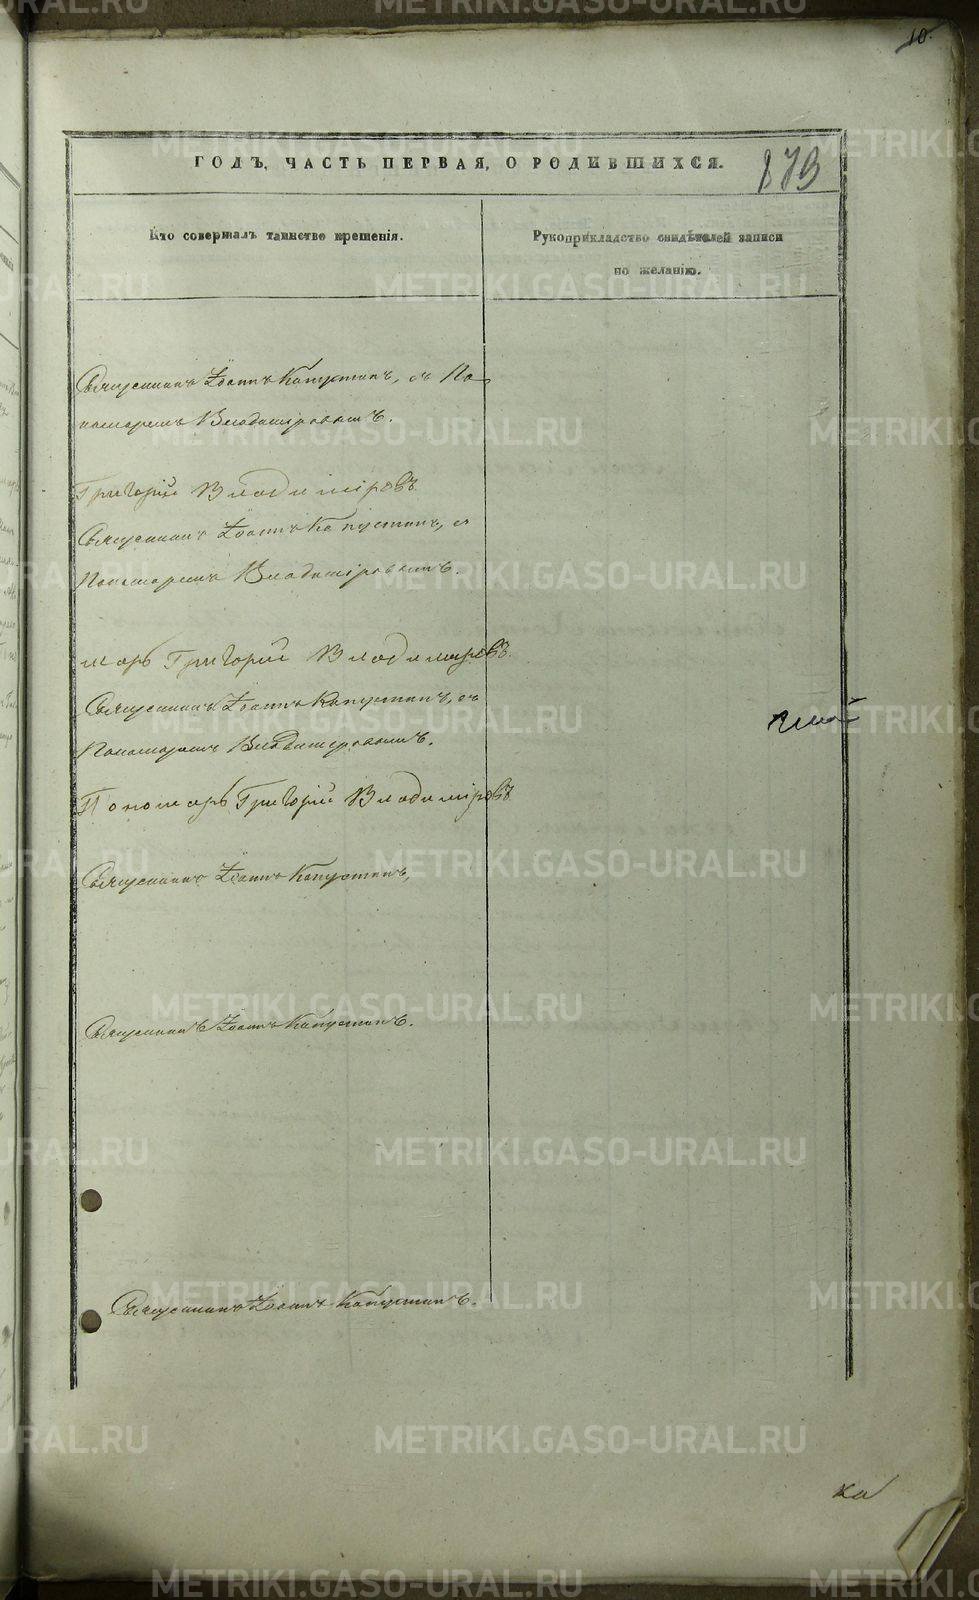 10.
ГОДЪ, ЧАСТЬ ПЕРВАЯ, О РОДИВШИХСЯ.
879
Кто совершалъ таинство крещенія.
Рукоприкладство свидѣтелей записи
по желанію.
Священникъ Іоаннъ Капустинъ, съ По-
номаремъ Владиміровымъ.
Григорій Владиміровъ
Священникъ Іоаннъ Капустинъ, съ
Пономаремъ Владиміровымъ.
марь Григорій Владимировъ.
Священникъ Іоаннъ Капустинъ, съ
Пономаремъ Владиміровымъ.
Пономарь Григорій Владиміровъ
Священникъ Іоаннъ Капустинъ,
Священникъ Іоаннъ Капустинъ.
Священникъ Іоаннъ Капустинъ.
METRIKI.GASO-URAL.RU